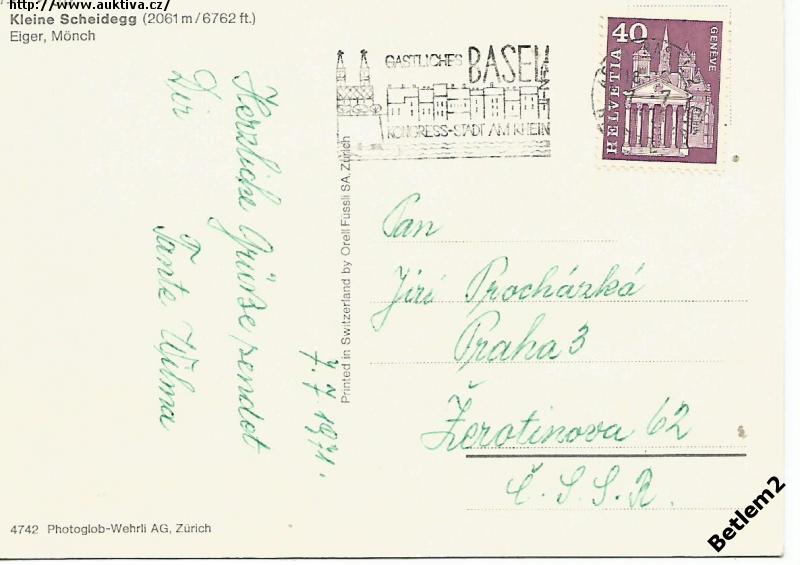 http://www.auktiva.cz/
Kleine Scheidegg (2061 m/6762 ft.)
Eiger, Mönch
Herzliche Grüße sendet
Dir
Tante Wilma
7.7.1971.
4742 Photoglob-Wehrli AG, Zürich
Printed in Switzerland by Orell Füssli SA, Zürich
GASTLICHES BASEL
KONGRESS-STADT AM RHEIN
40
HELVETIA
GENÈVE
Pan
Jiří Procházká
Praha 3
Žerotinova 62
Č. S. S. R.
Betlem2